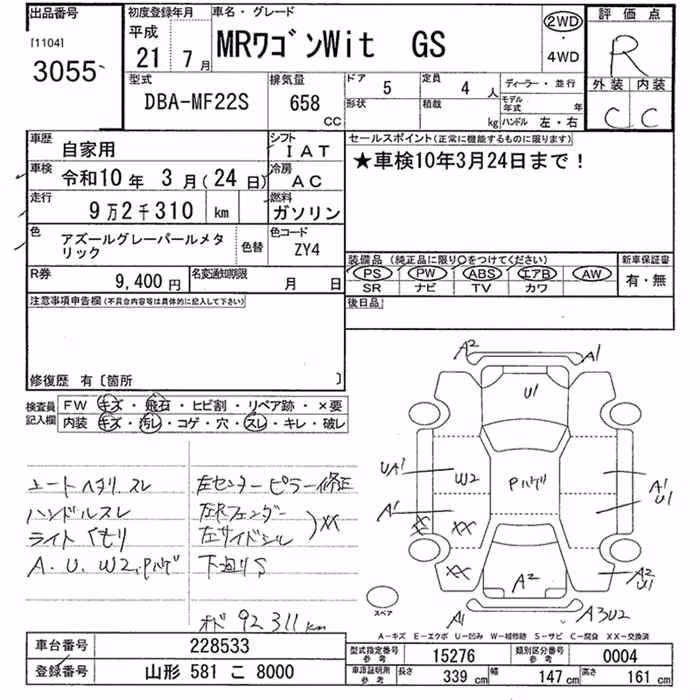 出品番号
[1104]
3055
初度登録年月
平成
21 7月
車名・グレード
MRワゴンWit GS
2WD
・
4WD
評価点
R
外装 内装
C C
型式
DBA-MF22S
排気量
658
CC
ドア 5
定員 4 人
形状
積載 kg
ディーラー・並行
モデル年式 年
ハンドル 左・右
車歴 自家用
シフト IAT
車検 令和10年 3月(24日)
冷房 AC
走行 9万2千310 km
燃料 ガソリン
色 アズールグレーパールメタリック
色替
色コード ZY4
R券 9,400円
名変通知期限 月 日
セールスポイント(正常に機能するものに限ります)
★車検10年3月24日まで!
装備品 (純正品に限り○をつけてください)
PS PW ABS エアB AW
SR ナビ TV カワ
新車保証書
有・無
後日品
注意事項申告欄(不具合内容等は具体的に記入して下さい)
修復歴 有〔箇所 〕
検査員記入欄
FW キズ・飛石・ヒビ割・リペア跡・×要
内装 キズ・汚レ・コゲ・穴・スレ・キレ・破レ
シートヘタリ スレ
ハンドルスレ
ライト くもり
A. U. W2. Pハゲ
左センターピラー修正
左Rフェンダー
左サイドシル
XX
下廻りS
オド 92311km
A2
A1
U1
UA1
W2
Pハゲ
A1
U1
A1
XX
XX
XX
A2
A2
U1
A1
A3U2
スペア
A-キズ E-エクボ U-凹み W-補修跡 S-サビ C-腐食 XX-交換済
車台番号 228533
登録番号 山形 581 こ 8000
型式指定番号 参考 15276
類別区分番号 参考 0004
車庫証明用 参考
長さ 339 cm
幅 147 cm
高さ 161 cm